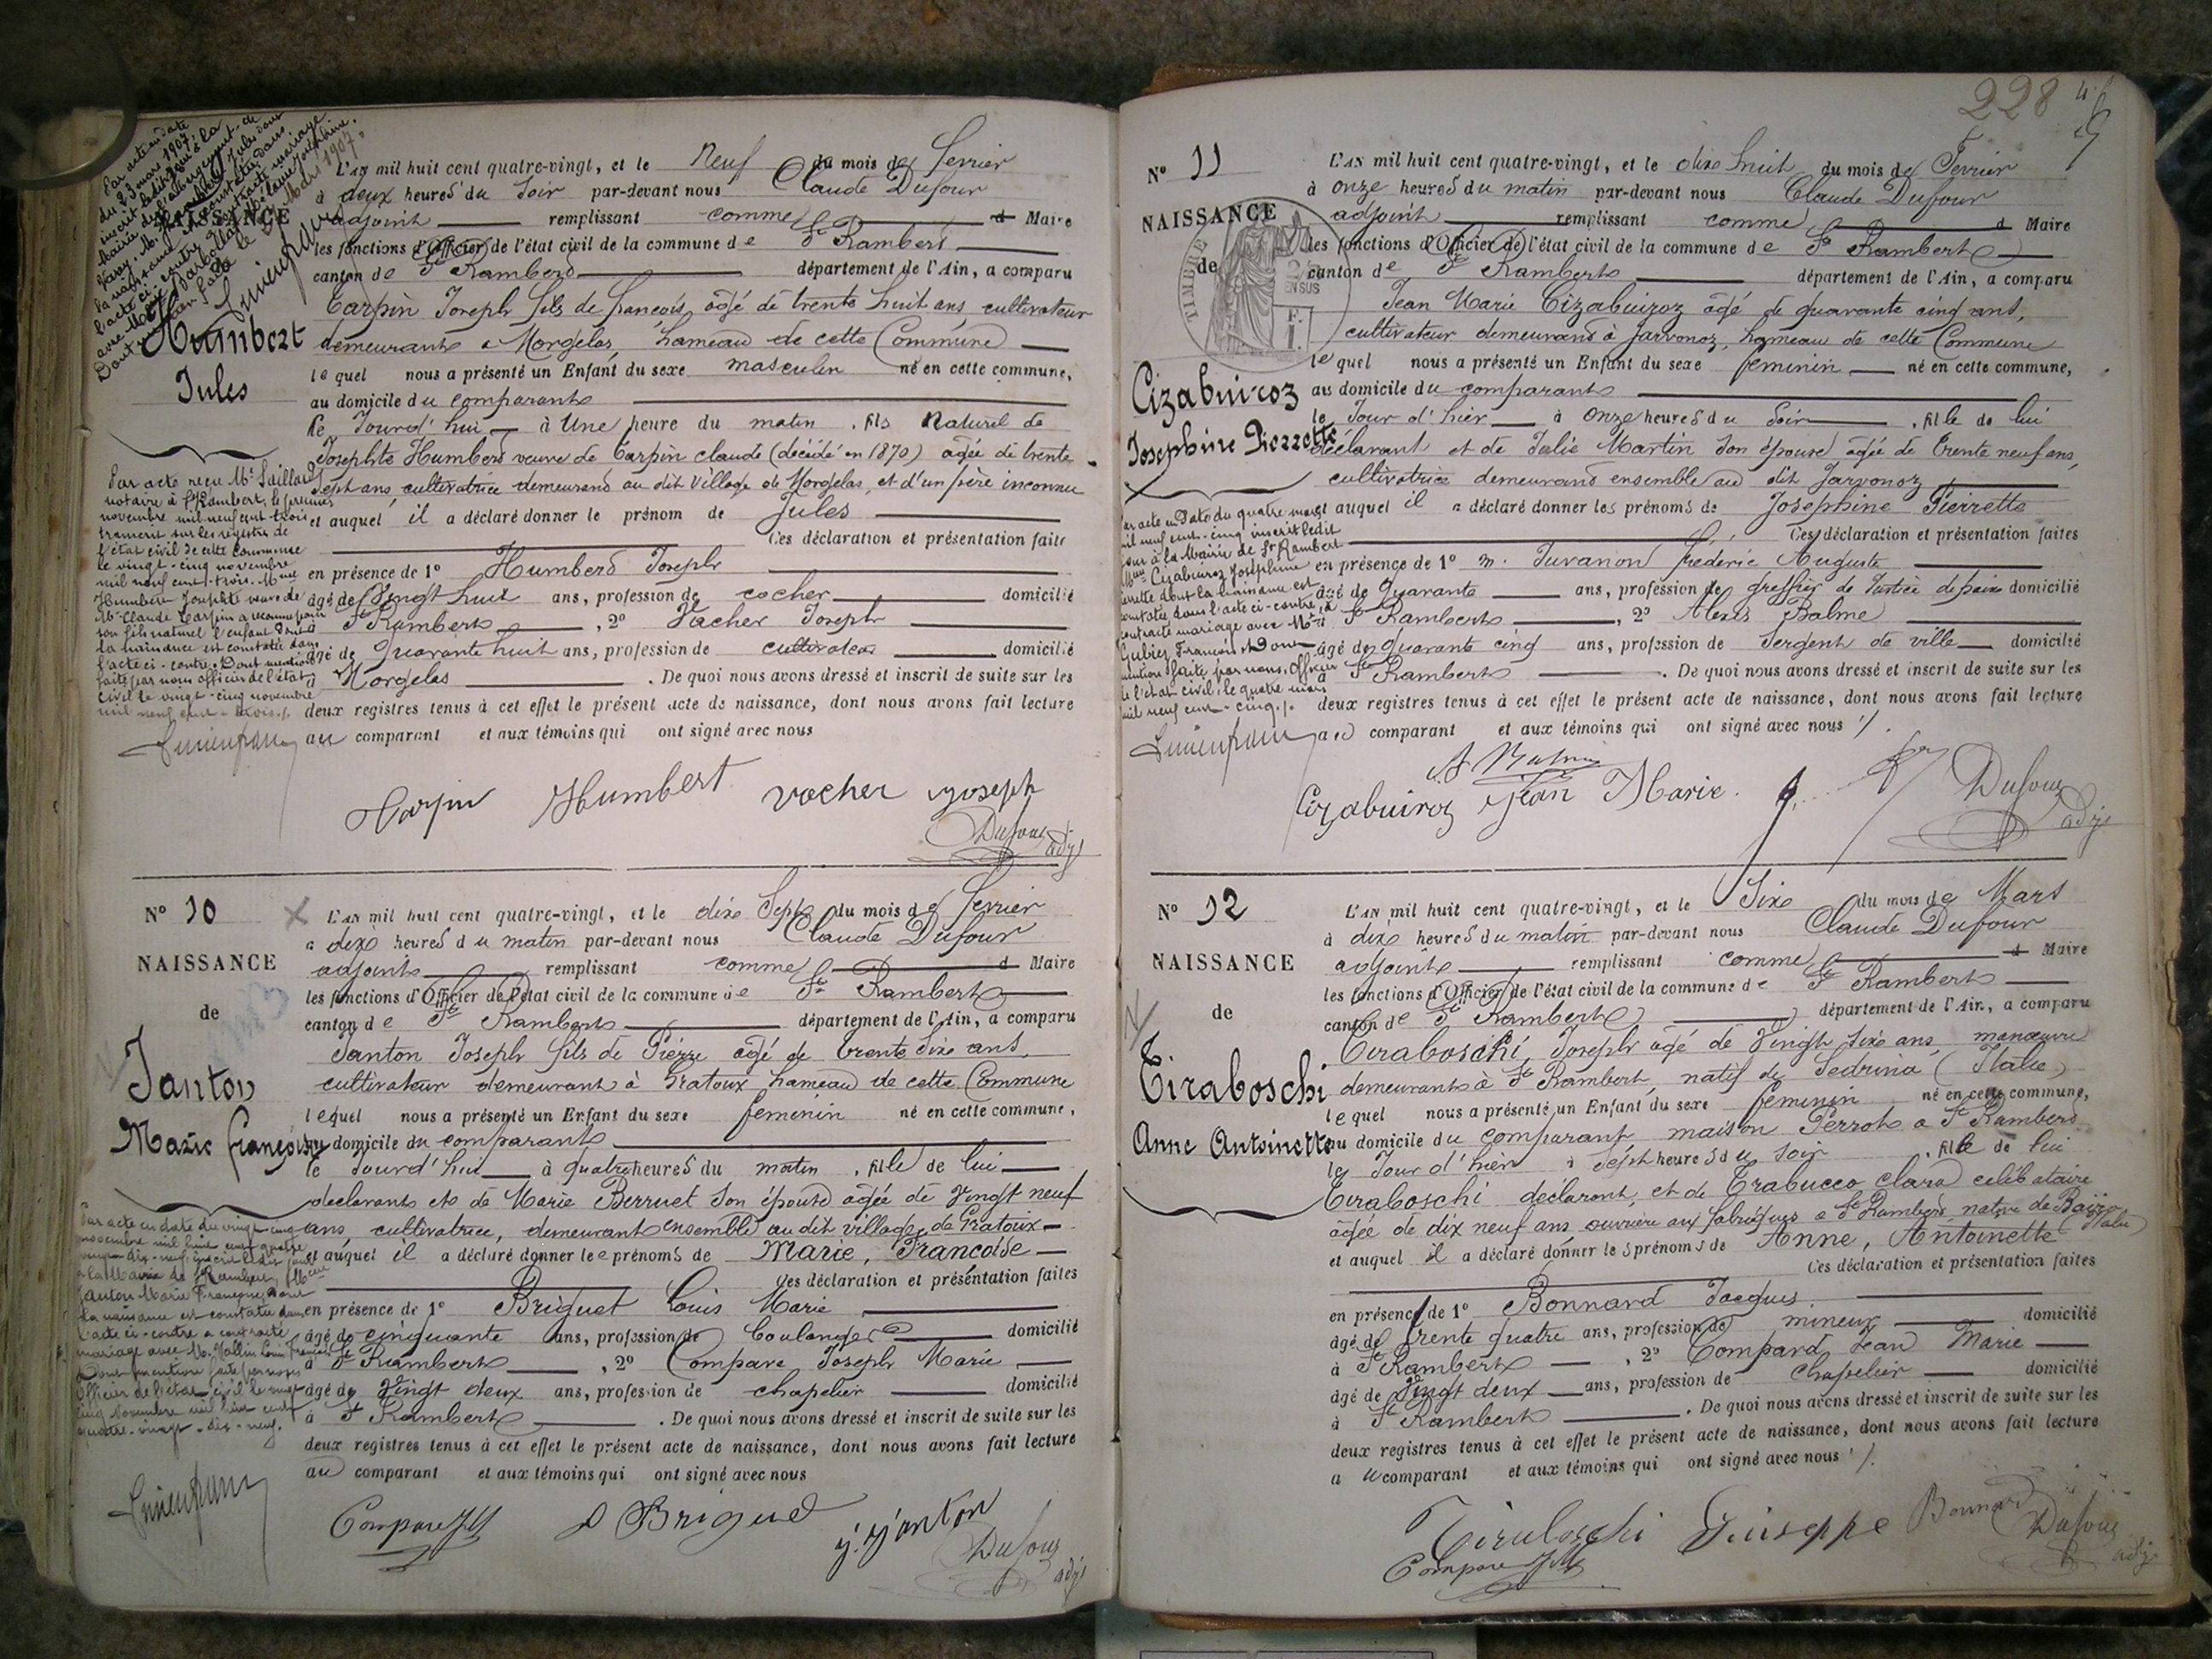 L'AN mil huit cent quatre-vingt, et le Neuf du mois de Fevrier
à deux heures du soir par-devant nous Claude Dufour
adjoint remplissant comme d Maire
les fonctions d'Officier de l'état civil de la commune de St Rambert
canton de St Rambert département de l'Ain, a comparu
Carpin Joseph fils de françois, agé de trente huit ans, cultivateur
demeurant à Morgelas, hameau de cette Commune
lequel nous a présenté un Enfant du sexe masculin né en cette commune,
au domicile du comparant
le Jourd'hui à Une heure du matin, fils Naturel de
Josephte Humbert veuve de Carpin claude (décédé en 1870) agée de trente
sept ans, cultivatrice demeurand au dit Village de Morgelas, et d'un père inconnu
et auquel il a déclaré donner le prénom de Jules
Ces déclaration et présentation faite
en présence de 1° Humbert Joseph
âgé de Vingt huit ans, profession de cocher domicilié
à St Rambert, 2° Vacher Joseph
âgé de Quarante huit ans, profession de cultivateur domicilié
à Morgelas. De quoi nous avons dressé et inscrit de suite sur les
deux registres tenus à cet effet le présent acte de naissance, dont nous avons fait lecture
au comparant et aux témoins qui ont signé avec nous
NAISSANCE
Humbert
Jules
Par acte reçu Me Saillard
notaire à St Rambert, le premier
novembre mil neuf cent trois
transcrit sur les registres de
l'état civil de cette commune
le vingt-cinq novembre
mil neuf cent trois. Mme
Humbert Josephte veuve de
Mr Claude Carpin a reconnu pour
son fils naturel l'enfant dont
la naissance est constatée dans
l'acte ci-contre. Dont mention
faite par nous officier de l'état
civil le vingt-cinq novembre
mil neuf cent trois
Carpin Humbert vacher joseph
Dufour adjt
N° 10
NAISSANCE
de
Janton
Marie françoise
L'AN mil huit cent quatre-vingt, et le dix Sept du mois de Fevrier
à dix heures du matin par-devant nous Claude Dufour
adjoint remplissant comme d Maire
les fonctions d'Officier de l'état civil de la commune de St Rambert
canton de St Rambert département de l'Ain, a comparu
Janton Joseph fils de Pierre agé de trente Six ans
cultivateur demeurant à Gratoux hameau de cette Commune
lequel nous a présenté un Enfant du sexe feminin né en cette commune,
au domicile du comparant
le Jourd'hui à quatre heures du matin, fille de lui
declarant et de Marie Berruet son épouse agée de Vingt neuf
ans, cultivatrice, demeurant ensemble au dit village de Gratoux
et auquel il a déclaré donner les prénoms de Marie, Francoise
Ces déclaration et présentation faites
en présence de 1° Briguet Louis Marie
âgé de cinquante ans, profession de boulanger domicilié
à St Rambert, 2° Compare Joseph Marie
âgé de Vingt deux ans, profession de chapelier domicilié
à St Rambert. De quoi nous avons dressé et inscrit de suite sur les
deux registres tenus à cet effet le présent acte de naissance, dont nous avons fait lecture
au comparant et aux témoins qui ont signé avec nous
Par acte en date du vingt-cinq
novembre mil huit cent quatre
vingt-dix-neuf, inscrit ledit jour
à la Mairie de St Rambert, Mme
Janton Marie Françoise, dont
la naissance est constatée dans
l'acte ci-contre a contracté
mariage avec Mr Vallin Louis
Dont mention faite par nous
Officier de l'état civil le vingt
cinq novembre mil huit cent
quatre-vingt-dix-neuf.
Compare JM Briguet j. janton
Dufour adjt
228
N° 11
NAISSANCE
de
TIMBRE
Cizabuiroz
Josephine Pierrette
L'AN mil huit cent quatre-vingt, et le dix huit du mois de Fevrier
à onze heures du matin par-devant nous Claude Dufour
adjoint remplissant comme d Maire
les fonctions d'Officier de l'état civil de la commune de St Rambert
canton de St Rambert département de l'Ain, a comparu
Jean Marie Cizabuiroz agé de quarante cinq ans,
cultivateur demeurand à Javornoz, hameau de cette Commune
lequel nous a présenté un Enfant du sexe feminin né en cette commune,
au domicile du comparant
le Jour d'hier à onze heures du Soir, fille de lui
déclarant et de Julie Martin son épouse agée de trente neuf ans,
cultivatrice demeurand ensemble au dit Javornoz
et auquel il a déclaré donner les prénoms de Josephine Pierrette
Ces déclaration et présentation faites
en présence de 1° m. Juvanon frederic Auguste
âgé de Quarante ans, profession de greffier de Justice de paix domicilié
à St Rambert, 2° Alexis Balme
âgé de quarante cinq ans, profession de Sergent de ville domicilié
à St Rambert. De quoi nous avons dressé et inscrit de suite sur les
deux registres tenus à cet effet le présent acte de naissance, dont nous avons fait lecture
au comparant et aux témoins qui ont signé avec nous
Par acte en date du quatre mars
mil neuf cent-cinq inscrit ledit
jour à la Mairie de St Rambert
Mme Cizabuiroz Joséphine
Pierrette dont la naissance est
constatée dans l'acte ci-contre, a
contracté mariage avec Mr
François Dont
mention faite par nous, Officier
de l'état civil, le quatre mars
mil neuf cent-cinq
A Balme
Cizabuiroz Jean Marie
Dufour adjt
N° 12
NAISSANCE
de
Tiraboschi
Anne Antoinette
L'AN mil huit cent quatre-vingt, et le Six du mois de Mars
à dix heures du matin par-devant nous Claude Dufour
adjoint remplissant comme d Maire
les fonctions d'Officier de l'état civil de la commune de St Rambert
canton de St Rambert département de l'Ain, a comparu
Tiraboschi, Joseph agé de Vingt Six ans, manœuvre
demeurant à St Rambert, natif de Sedrina (Italie)
lequel nous a présenté un Enfant du sexe feminin né en cette commune,
au domicile du comparant maison Perrot a St Rambert
le Jour d'hier à Sept heures du soir, fille de lui
Tiraboschi déclarant, et de Trabucco clara celibataire
agée de dix neuf ans, ouvrière aux fabriques a St Rambert native de
(Italie)
et auquel il a déclaré donner les prénoms de Anne, Antoinette
Ces déclaration et présentation faites
en présence de 1° Bonnard Jacques
âgé de trente quatre ans, profession de mineur domicilié
à St Rambert, 2° Compard Jean Marie
âgé de Vingt deux ans, profession de Chapelier domicilié
à St Rambert. De quoi nous avons dressé et inscrit de suite sur les
deux registres tenus à cet effet le présent acte de naissance, dont nous avons fait lecture
au comparant et aux témoins qui ont signé avec nous
Tiraboschi Giuseppe Bonnard
Compare JM Dufour adjt